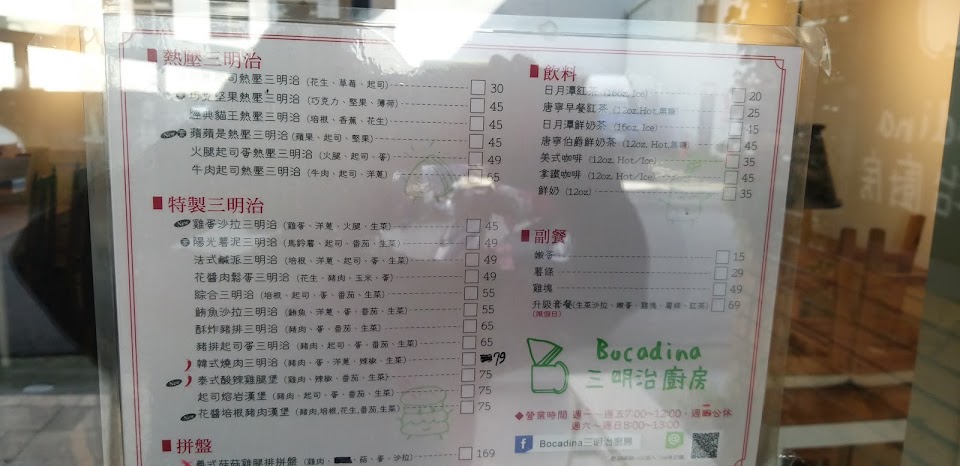 熱壓三明治
司熱壓三明治 (花生、草莓、起司) 30
巧克堅果熱壓三明治 (巧克力、堅果、薄荷) 45
經典貓王熱壓三明治 (培根、香蕉、花生) 45
New 蘋蘋是熱壓三明治 (蘋果、起司、堅果) 45
火腿起司蛋熱壓三明治 (火腿、起司、蛋) 49
牛肉起司熱壓三明治 (牛肉、起司、洋蔥) 65
特製三明治
New 雞蛋沙拉三明治 (雞蛋、洋蔥、火腿、生菜) 45
陽光薯泥三明治 (馬鈴薯、起司、番茄、生菜) 49
法式鹹派三明治 (培根、洋蔥、起司、蛋、生菜) 49
花醬肉鬆蛋三明治 (花生、豬肉、玉米、蛋) 49
綜合三明治 (培根、起司、蛋、番茄、生菜) 55
鮪魚沙拉三明治 (鮪魚、洋蔥、蛋、生菜) 55
酥炸豬排三明治 (豬肉、蛋、番茄、生菜) 65
豬排起司蛋三明治 (豬肉、起司、蛋、番茄、生菜) 65
韓式燒肉三明治 (豬肉、蛋、洋蔥、辣椒、生菜) 79
New 泰式酸辣雞腿堡 (雞肉、辣椒、番茄、生菜) 75
起司熔岩漢堡 (豬肉、起司、番茄、生菜) 75
New 花醬培根豬肉漢堡 (豬肉,培根,花生,番茄,生菜) 75
拼盤
義式菇菇雞腿排拼盤 (雞肉、菇、蛋、沙拉) 169
飲料
日月潭紅茶 (16oz, Ice) 20
唐寧早餐紅茶 (12oz,Hot,無糖) 25
日月潭鮮奶茶 (16oz, Ice) 45
唐寧伯爵鮮奶茶 (12oz,Hot,無糖) 45
美式咖啡 (12oz. Hot/Ice) 35
拿鐵咖啡 (12oz. Hot/Ice) 45
鮮奶 (12oz) 35
副餐
嫩蛋 15
薯條 29
雞塊 49
升級套餐(生菜沙拉、嫩蛋、雞塊、薯條、紅茶) 69
(限假日)
Bocadina
三明治廚房
◆營業時間 週一~週五7:00~12:00，週公休
週六~週日8:00~13:00
f Bocadina三明治廚房